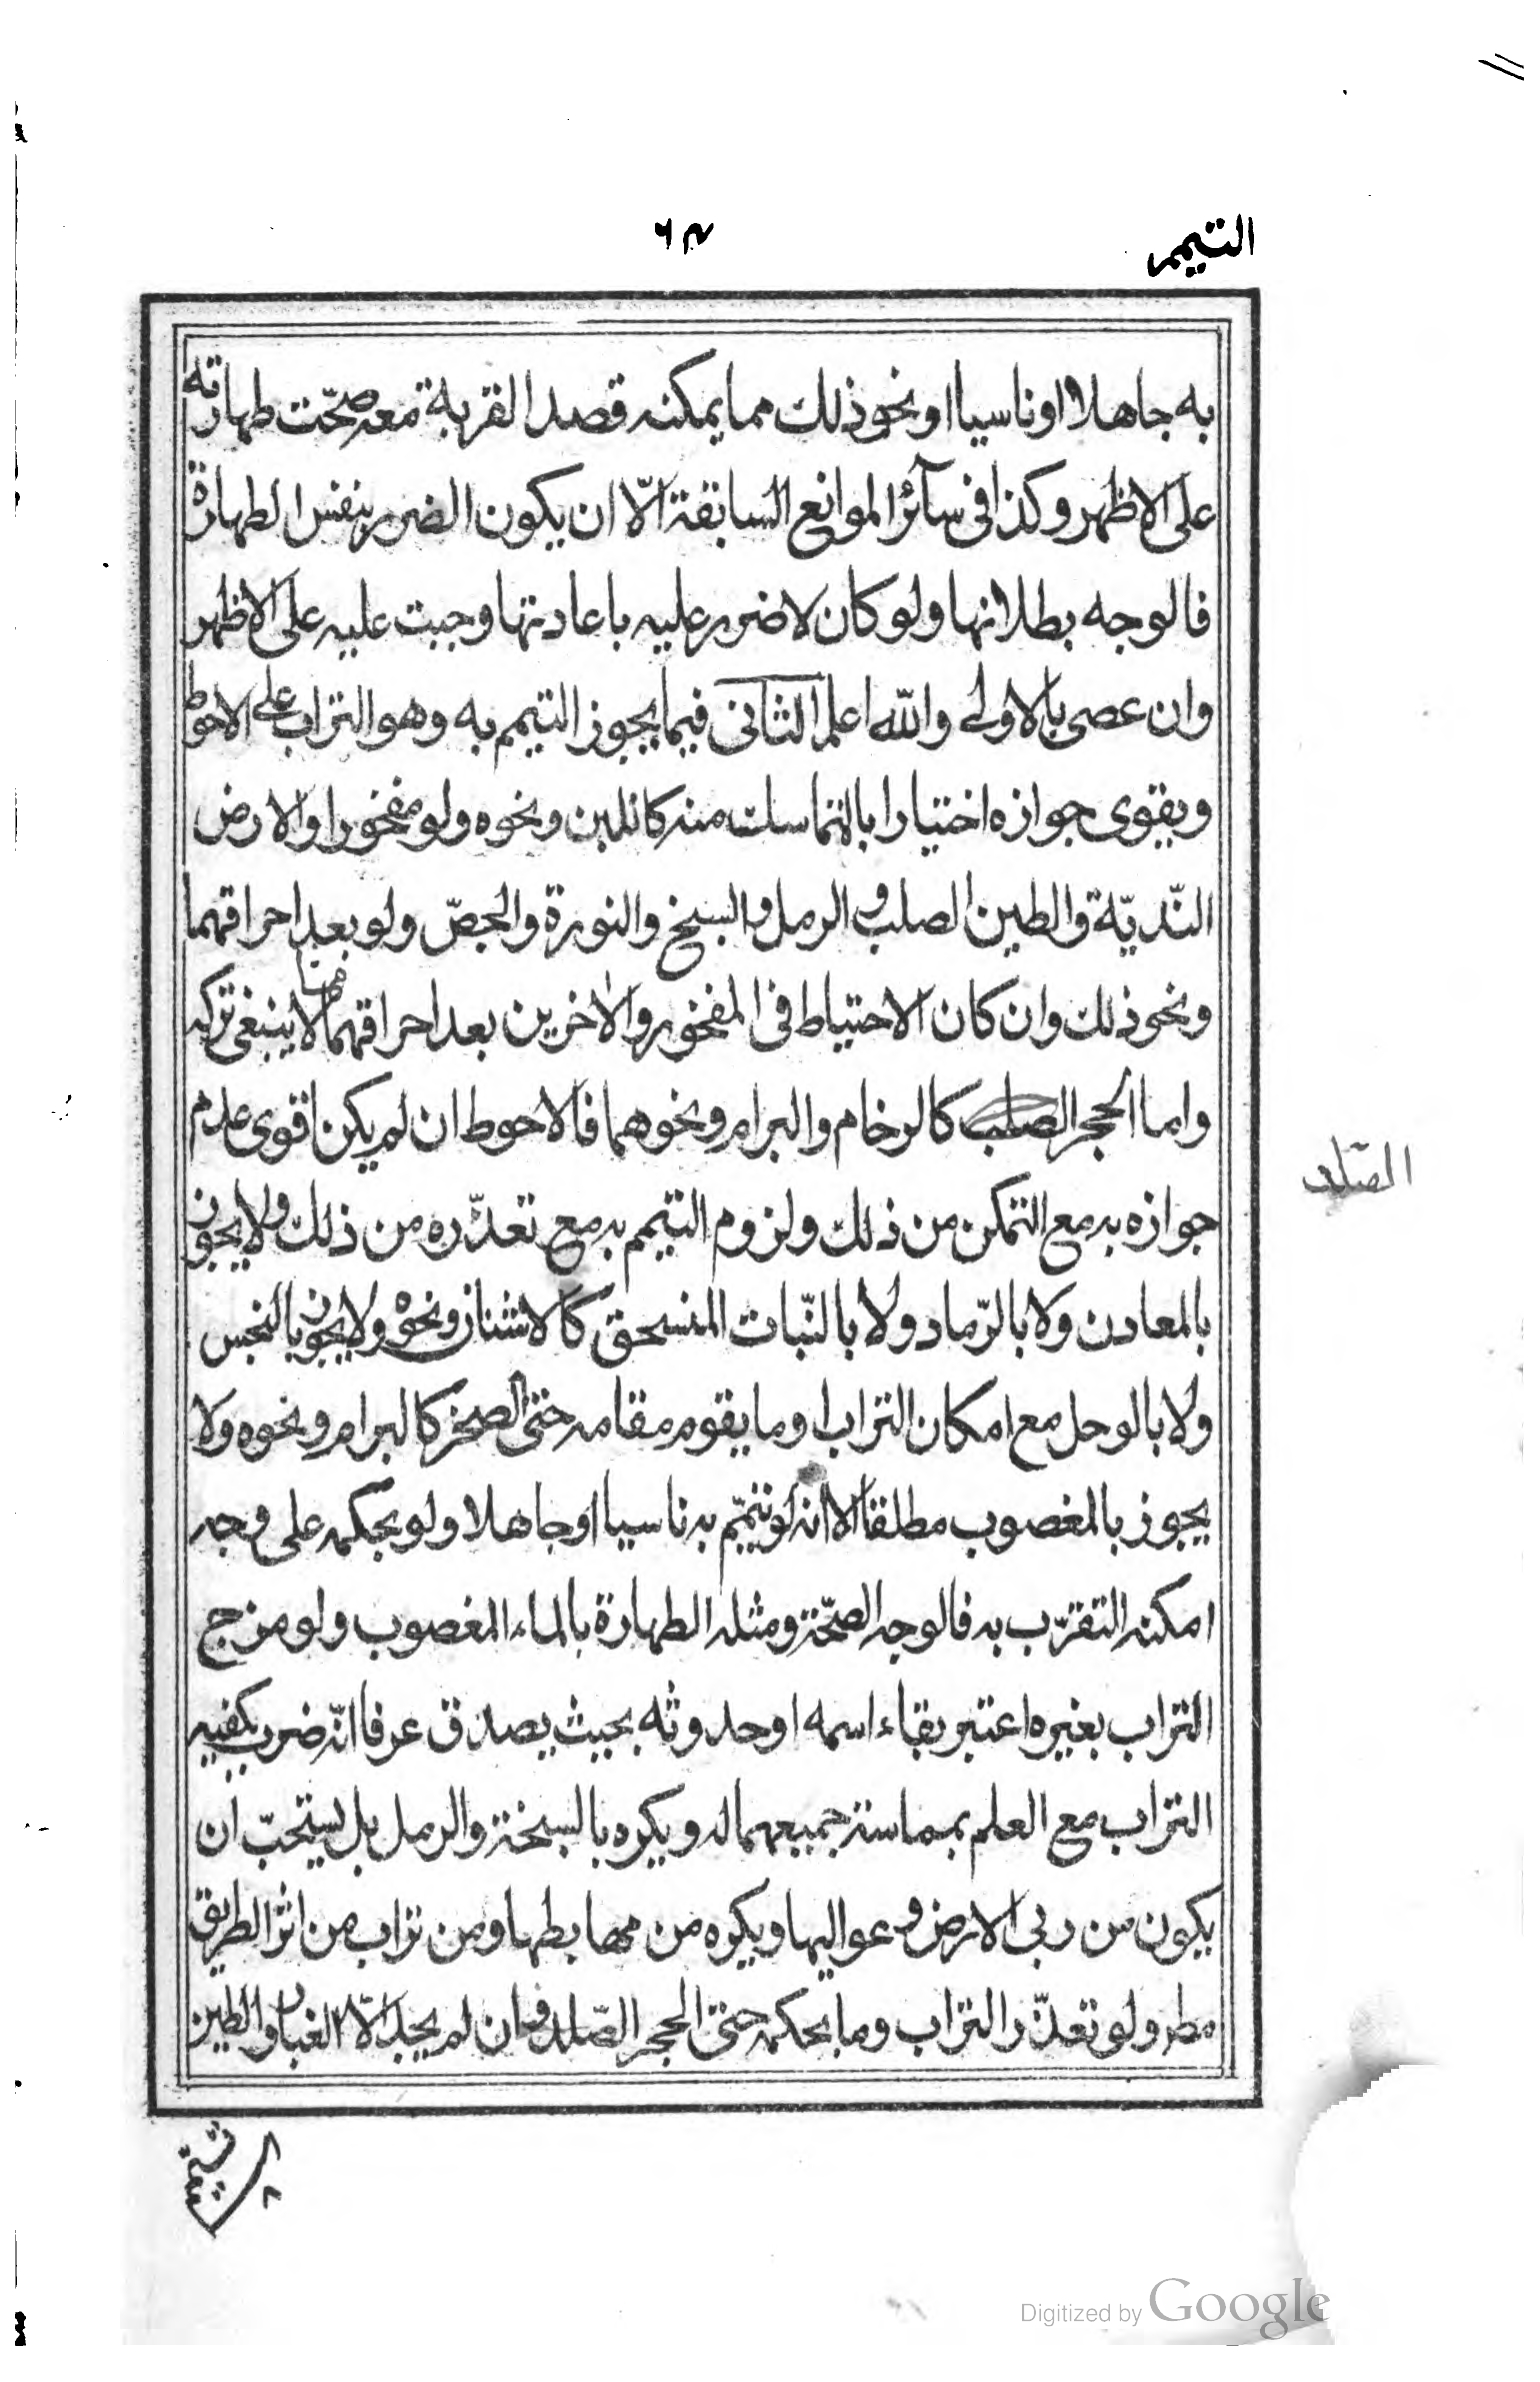 التيمم
٦٣
به جاهلا او ناسيا او نحو ذلك مما يمكنه قصد القربة معه صحّت طهارته
على الاظهر وكذا فى سآئر الموانع السابقة الّا ان يكون الضرر بنفس الطهارة
فالوجه بطلانها ولو كان لا ضرر عليه باعادتها وجبت عليه على الاظهر
وان عصى بالاولى والله اعلم الثانى فيما يجوز التيمم به وهو التراب على الاحوط
ويقوى جوازه اختيارا بالمتماسك منه كاللبن ونحوه ولو مفخورا والارض
النّديّة والطين الصلب والرمل والسبخ والنورة والجصّ ولو بعد احراقهما
ونحو ذلك وان كان الاحتياط فى المفخور والاخرين بعد احراقهما مما لا ينبغى تركه
واما الحجر الصلب كالرخام والبرام ونحوهما فالاحوط ان لم يكن اقوى عدم
الصّلد
جوازه به مع التمكن من ذلك ولزوم التيمم به مع تعذّره من ذلك ولا يجوز
بالمعادن ولا بالرّماد ولا بالنّبات المنسحق كالاشنان ونحوه ولا يجوز بالنجس
ولا بالوحل مع امكان التراب او ما يقوم مقامه حتى الصخر كالبرام ونحوه ولا
يجوز بالمغصوب مطلقا الا انه لو تيمّم به ناسيا او جاهلا ولو بحكمه على وجه
امكنه التقرّب به فالوجه الصحّة ومثله الطهارة بالماء المغصوب ولو مزج
التراب بغيره اعتبر بقاء اسمه او حدوثه بحيث يصدق عرفا انّه ضرب بكفيه
التراب مع العلم بمماسة جميعهما له ويكره بالسبخة والرمل بل يستحبّ ان
يكون من ربى الارض وعواليها ويكره من مهابطها ومن تراب من اثر الطريق
مطر ولو تعذّر التراب وما بحكمه حتى الحجر الصّلد فان لم يجد الّا الغبار والطين
Digitized by Google